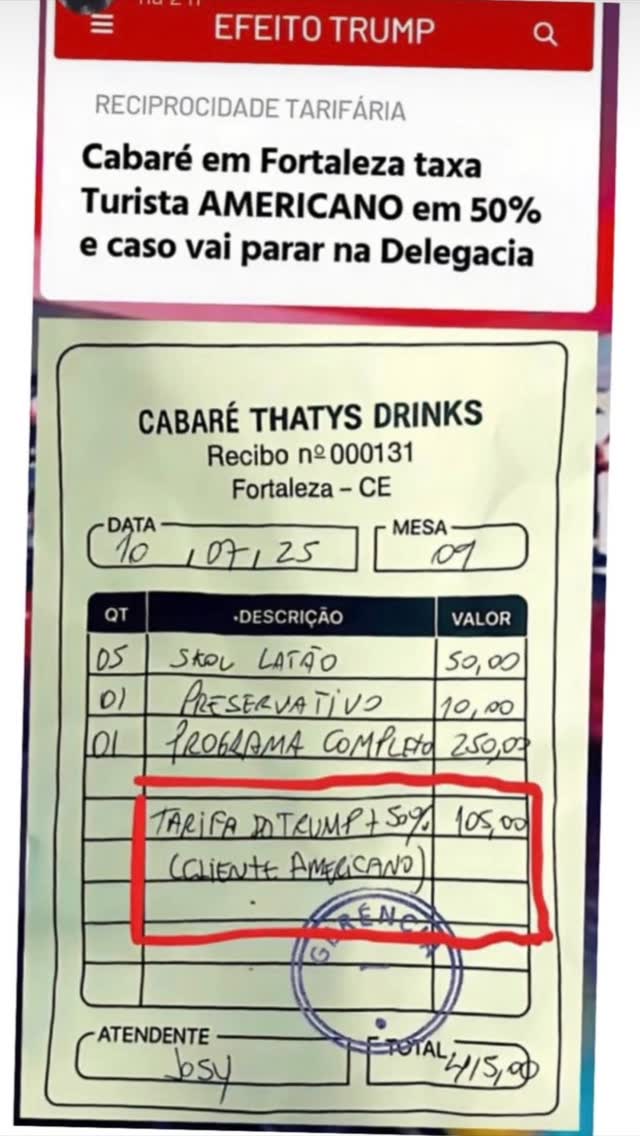 EFEITO TRUMP
RECIPROCIDADE TARIFÁRIA
Cabaré em Fortaleza taxa
Turista AMERICANO em 50%
e caso vai parar na Delegacia
CABARÉ THATYS DRINKS
Recibo nº 000131
Fortaleza – CE
DATA
10 / 07 / 25
MESA
09
QT DESCRIÇÃO VALOR
05 SKOL LATÃO 50,00
01 PRESERVATIVO 10,00
01 PROGRAMA COMPLETO 250,00
TARIFA DO TRUMP + 50% 105,00
(CLIENTE AMERICANO)
GERÊNCIA
ATENDENTE
Josy
TOTAL
415,00